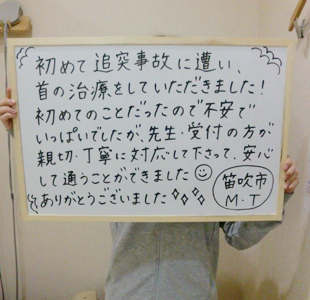 初めて追突事故に遭い、
首の治療をしていただきました!
初めてのことだったので不安で
いっぱいでしたが、先生・受付の方が
親切・丁寧に対応して下さって、安心
して通うことができました
ありがとうございました
笛吹市
M・T